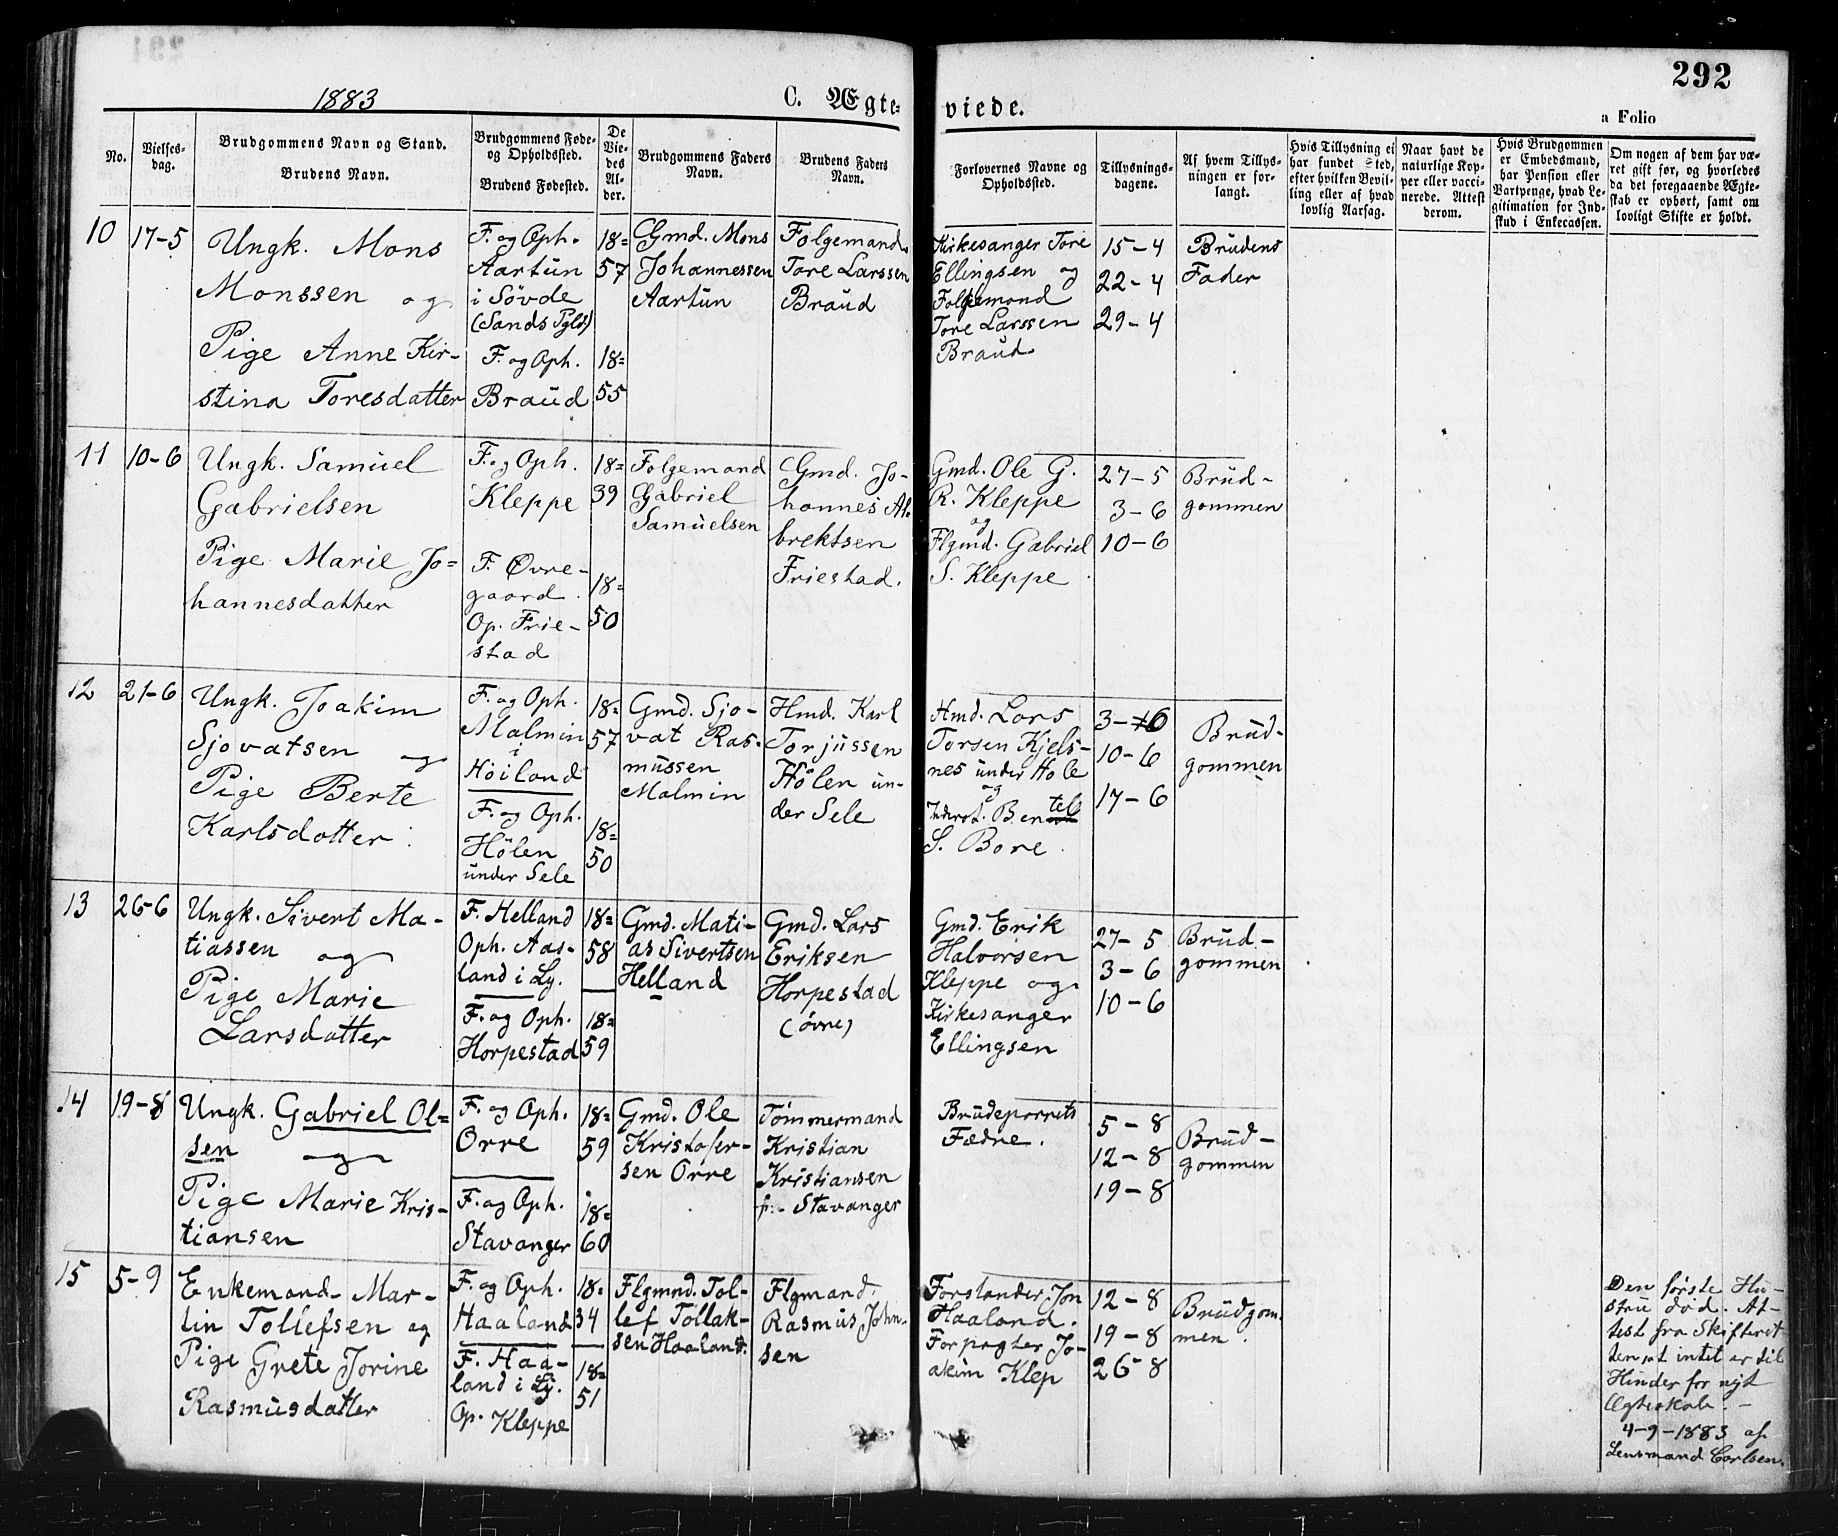 1883
C. Ægte-
viede.
292
a Folio
No.
Vielses-
dag.
Brudgommens Navn og Stand.
Brudens Navn.
Brudgommens Føde-
og Opholdssted.
Brudens Fødested.
De
Vie-
des
Al-
der.
Brudgommens Faders
Navn.
Brudens Faders
Navn.
Forlovernes Navne og
Opholdssted.
Tillysnings-
dagene.
Af hvem Tillys-
ningen er for-
langt.
Hvis Tillysning ei
har fundet Sted,
efter hvilken Bevil-
ling eller af hvad
lovlig Aarsag.
Naar havt de
naturlige Kop-
per eller vacci-
nerede. Attest
derom.
Hvis Brudgommen
er Embedsmand,
har Pension eller
Vartpenge, hvad Le-
gitimation for Ind-
skud i Enkecassen.
Om nogen af dem har væ-
ret gift før, og hvorledes
da det foregaaende Ægte-
skab er ophørt, samt om
lovligt Skifte er holdt.
10
17-5
Ungk. Mons
Monssen og
Pige Anne Kir-
stina Toresdatter
F. og Oph.
Aartun
i Søvde
(Sands Pgld)
F. og Oph.
Braud
18=
57
18=
55
Gmd. Mons
Johannessen
Aartun
Folgemand
Tore Larssen
Braud
Kirkesanger Tore
Ellingsen og
Folgemand
Tore Larssen
Braud.
15-4
22-4
29-4
Brudens
Fader
11
10-6
Ungk. Samuel
Gabrielsen
Pige Marie Jo=
hannesdatter
F. og Oph.
Kleppe
F. Øvre-
gaard.
Op. Frie-
stad
18=
39
18=
50
Folgemand
Gabriel
Samuelsen
Gmd. Jo-
hannes Al-
brektsen
Friestad.
Gmd. Ole G.
R. Kleppe
og
Flgmd. Gabriel
S. Kleppe
27-5
3-6
10-6
Brud-
gommen
12
21-6
Ungk. Joakim
Sjovatsen og
Pige Berte
Karlsdatter.
F. og Oph.
Malmin
i
Høiland
F. og Oph.
Hølen
under Sele
18=
57
18=
50
Gmd. Sjo-
vat Ras-
mussen
Malmin
Hmd. Karl
Torjussen
Hølen un-
der Sele
Hmd. Lars
Torsen Kjels-
nes under Hole
og
Bentel
S. Bore.
3-6
10-6
17-6
Brud-
gommen
13
26-6
Ungk. Sivert Ma-
tiassen og
Pige Marie
Larsdatter
F. Helland
Oph. Aas-
land i Ly.
F. og Oph.
Horpestad
18=
58
18=
59
Gmd. Mati-
as Sivertsen
Helland
Gmd. Lars
Eriksen
Horpestad
(øvre)
Gmd. Erik
Halvorsen
Kleppe og
Kirkesanger
Ellingsen
27-5
3-6
10-6
Brud-
gommen
14
19-8
Ungk. Gabriel Ol=
sen og
Pige Marie Kris-
tiansen
F. og Oph.
Orre
F. og Oph.
Stavanger
18=
59
18=
60
Gmd. Ole
Kristofer-
sen Orre
Tømmermand
Kristian
Kristiansen
Stavanger
Brudeparrets
Fædre.
5-8
12-8
19-8
Brud-
gommen
15
5-9
Enkemand Mar-
tin Tollefsen og
Pige Grete Jorine
Rasmusdatter
F. og Oph.
Haaland
F. Haa-
land i Ly.
Op. Kleppe
18=
34
18=
51
Flgmnd. Tol-
lef Tollak-
sen Haaland.
Flgmand.
Rasmus John-
sen
Forstander Jon
Haaland.
Forpagter Jo-
akim Klep
12-8
19-8
26-8
Brudgom-
men.
Den første Hu-
stru død. At-
test fra Skifteret-
ten at intet er til
Hinder for nyt
Ægteskab.-
4-9-1883 af
Lensmand Carlsen.